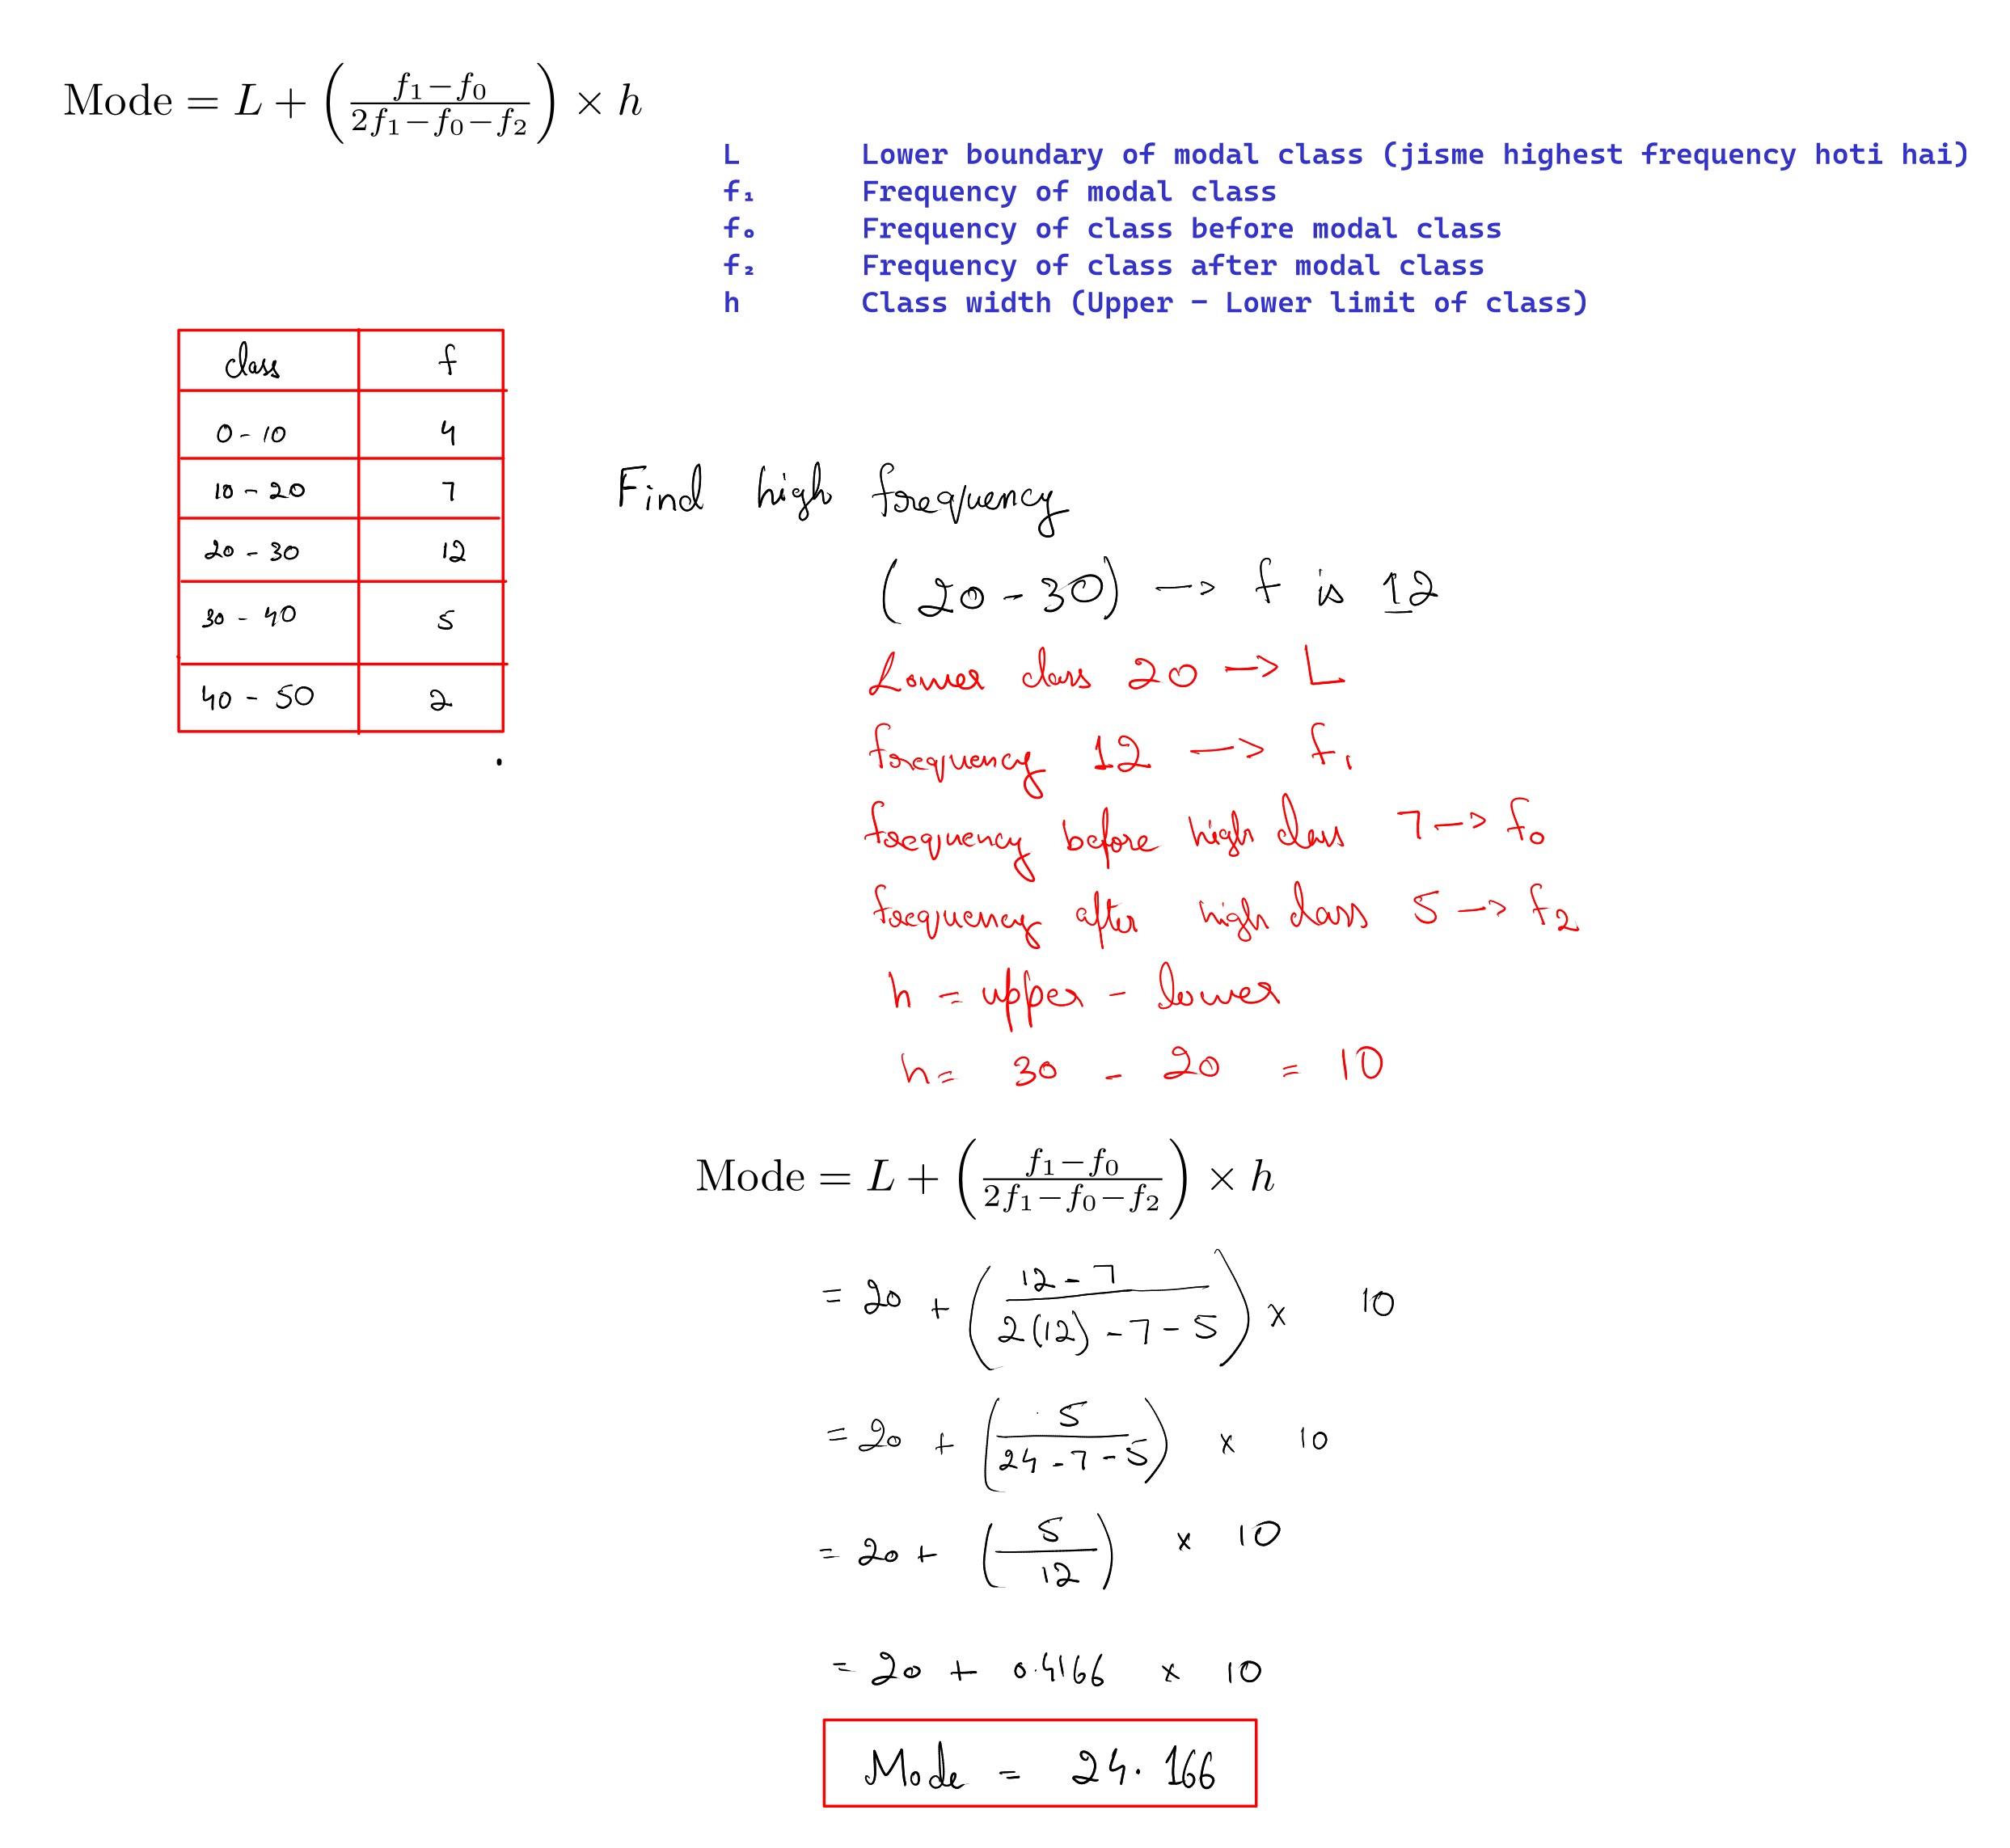 Mode = L + ( f₁−f₀ / 2f₁−f₀−f₂ ) × h
L Lower boundary of modal class (jisme highest frequency hoti hai)
f₁ Frequency of modal class
f₀ Frequency of class before modal class
f₂ Frequency of class after modal class
h Class width (Upper − Lower limit of class)
class f
0 - 10 4
10 - 20 7
20 - 30 12
30 - 40 5
40 - 50 2
Find high frequency
(20 - 30) → f is 12
Lower class 20 → L
frequency 12 → f₁
frequency before high class 7 → f₀
frequency after high class 5 → f₂
h = upper - lower
h = 30 - 20 = 10
Mode = L + ( f₁−f₀ / 2f₁−f₀−f₂ ) × h
= 20 + ( 12 - 7 / 2(12) - 7 - 5 ) × 10
= 20 + ( 5 / 24 - 7 - 5 ) × 10
= 20 + ( 5 / 12 ) × 10
= 20 + 0.4166 × 10
Mode = 24.166